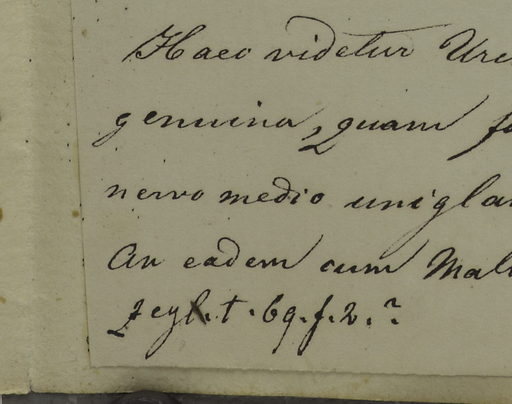 Haec videtur Ure
genuina, quam fo
nervo medio uniglan
An eadem cum Malv
zeyl. t. 69. f. 2. ?